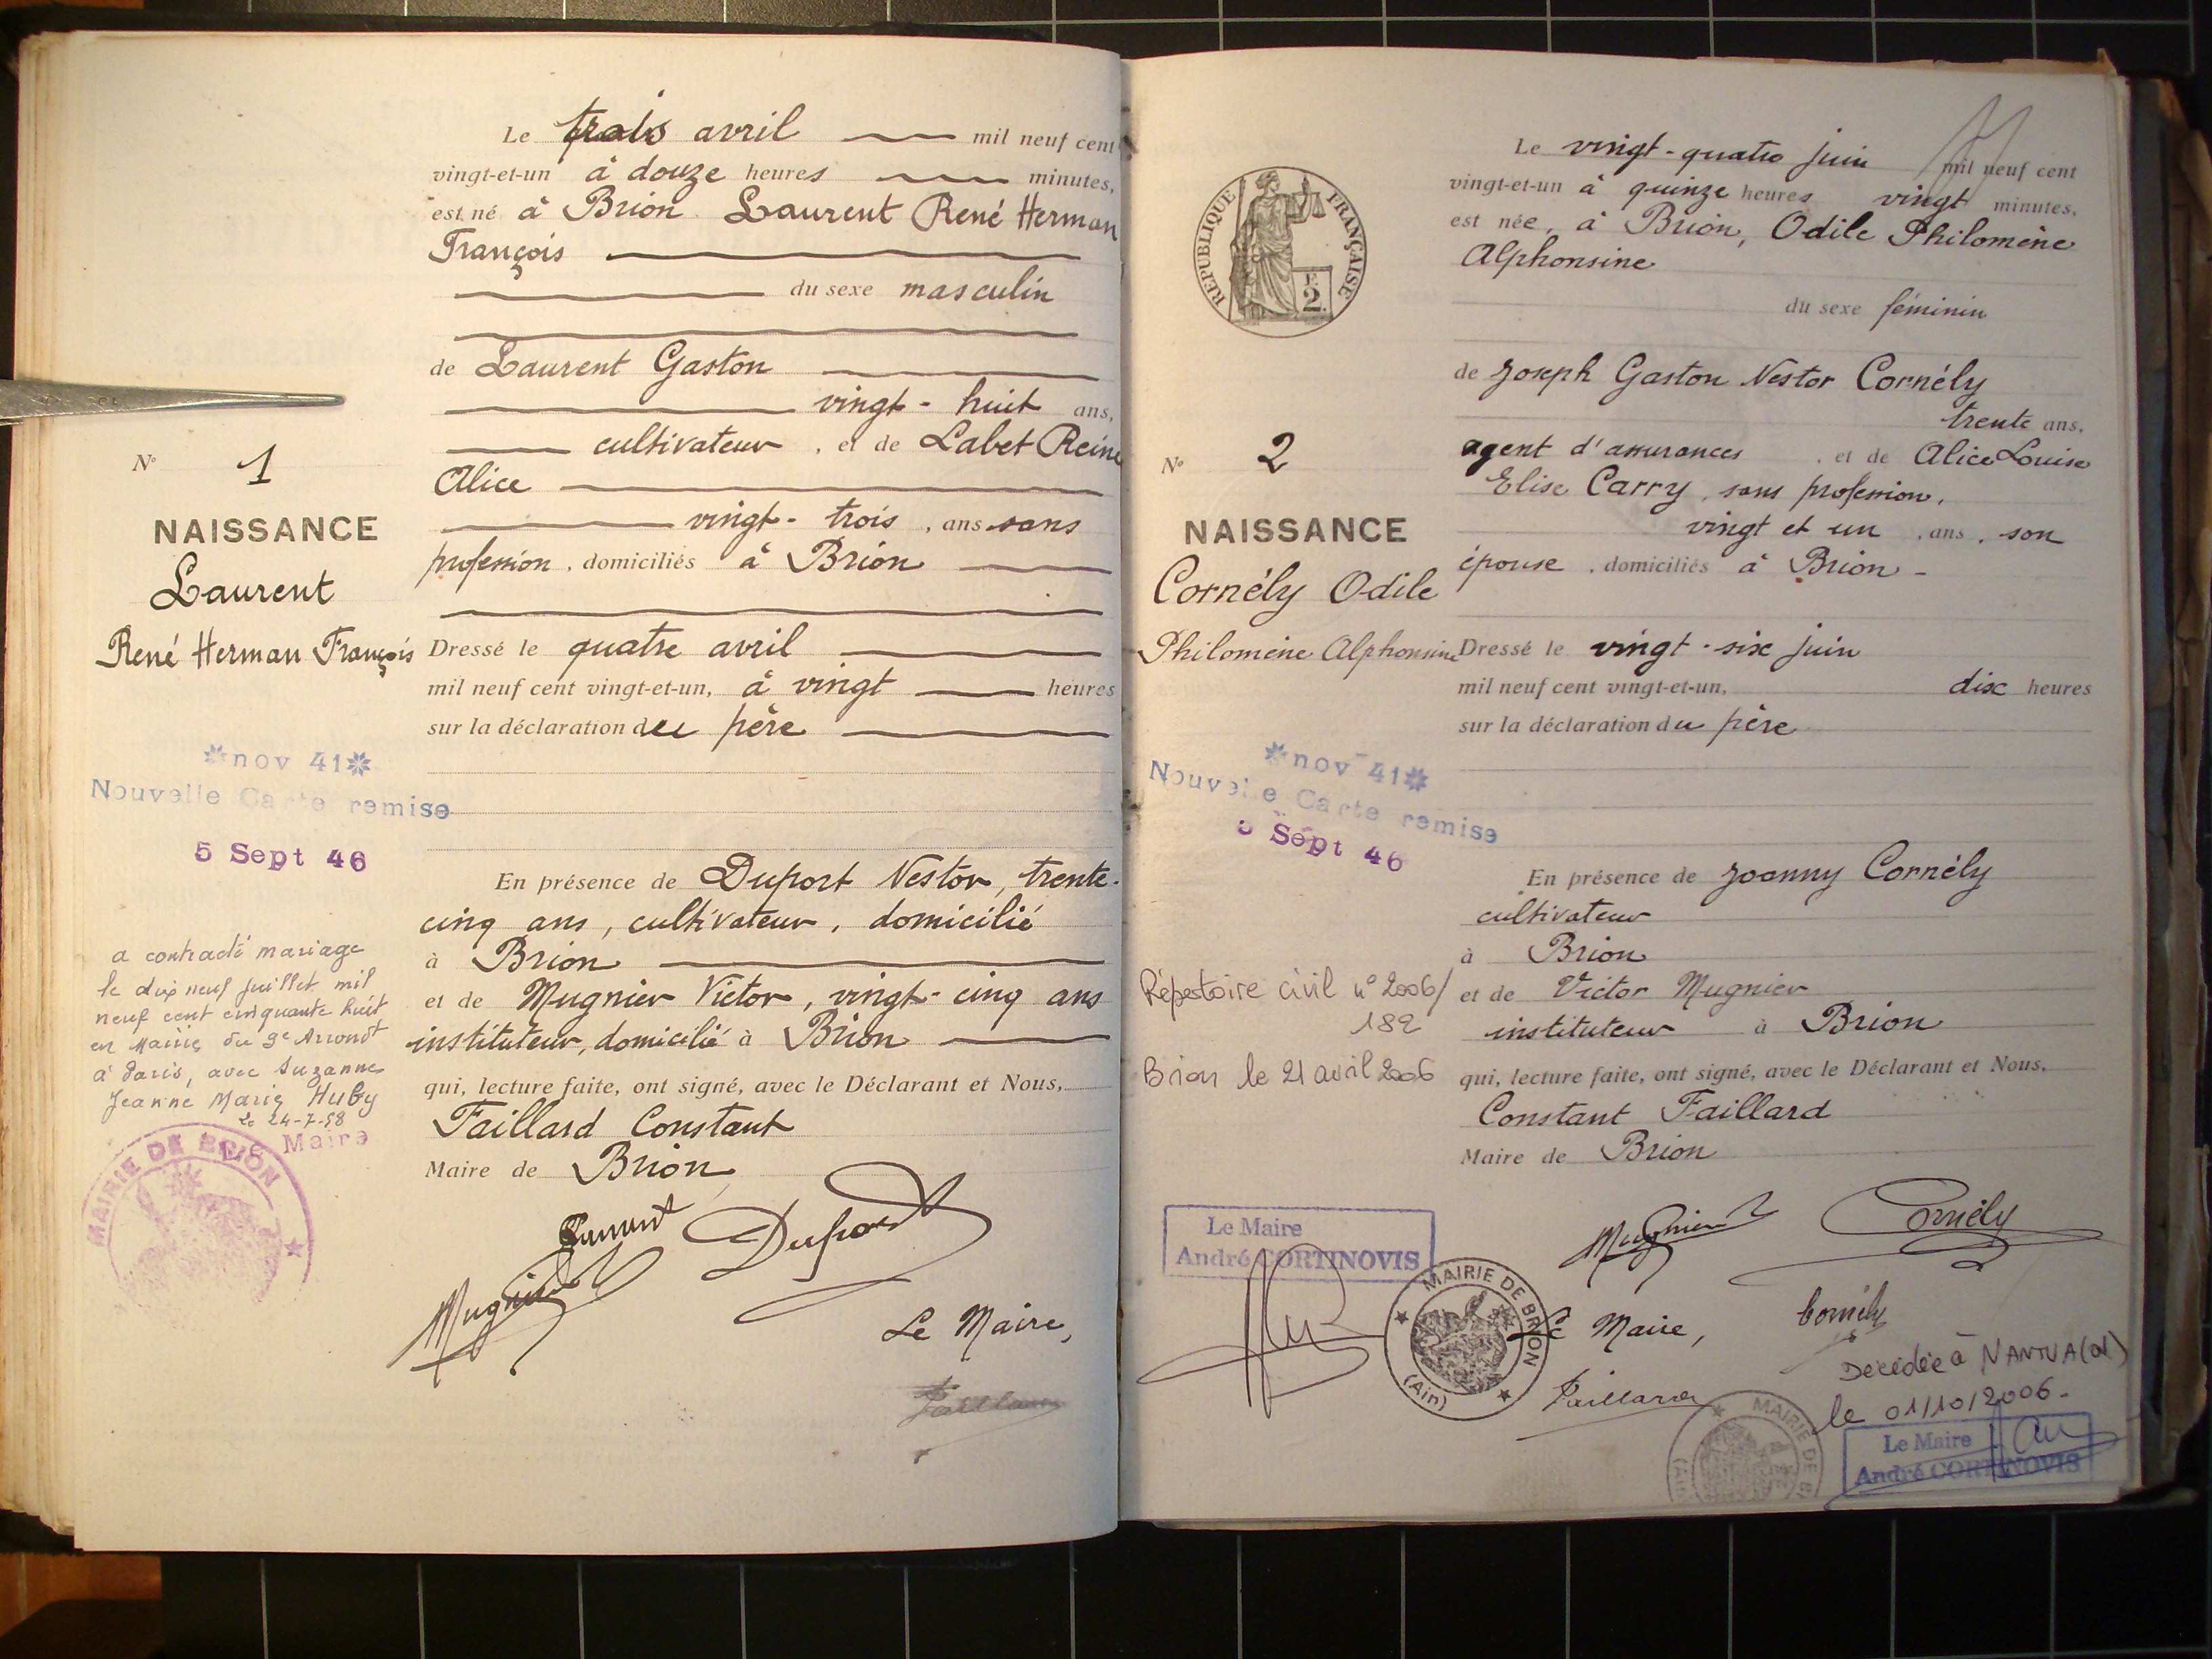 Le trois avril mil neuf cent
vingt-et-un à douze heures minutes,
est né à Brion Laurent René Herman
François
du sexe masculin
de Laurent Gaston
vingt-huit ans,
cultivateur, et de Labet Reine
Alice
vingt-trois, ans sans
profession, domiciliés à Brion
Dressé le quatre avril
mil neuf cent vingt-et-un, à vingt heures
sur la déclaration du père
En présence de Duport Nestor, trente-
cinq ans, cultivateur, domicilié
à Brion
et de Mugnier Victor, vingt-cinq ans
instituteur, domicilié à Brion
qui, lecture faite, ont signé, avec le Déclarant et Nous,
Faillard Constant
Maire de Brion
Laurent Duport
Mugnier
Le Maire,
Faillard
No 1
NAISSANCE
Laurent
René Herman François
*nov 41*
Nouvelle Carte remise
5 Sept 46
a contracté mariage
le dix neuf juillet mil
neuf cent cinquante huit
en Mairie du 9e Arrondt
à Paris, avec Suzanne
Jeanne Marie Huby
Le 24-7-58
Le Maire
MAIRIE DE BRION
RÉPUBLIQUE FRANÇAISE
2
No 2
NAISSANCE
Cornély Odile
Philomène Alphonsine
*nov 41*
Nouvelle Carte remise
5 Sept 46
Répertoire civil n° 2006/
182
Brion le 21 avril 2006
Le Maire
André CORTINOVIS
MAIRIE DE BRION
(Ain)
Le vingt-quatre juin mil neuf cent
vingt-et-un à quinze heures vingt minutes,
est née, à Brion, Odile Philomène
Alphonsine
du sexe féminin
de Joseph Gaston Nestor Cornély
trente ans,
agent d'assurances, et de Alice Louise
Elise Carry, sans profession,
vingt et un, ans, son
épouse, domiciliés à Brion -
Dressé le vingt-six juin
mil neuf cent vingt-et-un, dix heures
sur la déclaration du père
En présence de Joanny Cornély
cultivateur
à Brion
et de Victor Mugnier
instituteur à Brion
qui, lecture faite, ont signé, avec le Déclarant et Nous,
Constant Faillard
Maire de Brion
Mugnier Cornély
Le Maire, Cornély
Faillard
Décédée à NANTUA (01)
le 01/10/2006-
MAIRIE DE
Le Maire
André CORTINOVIS